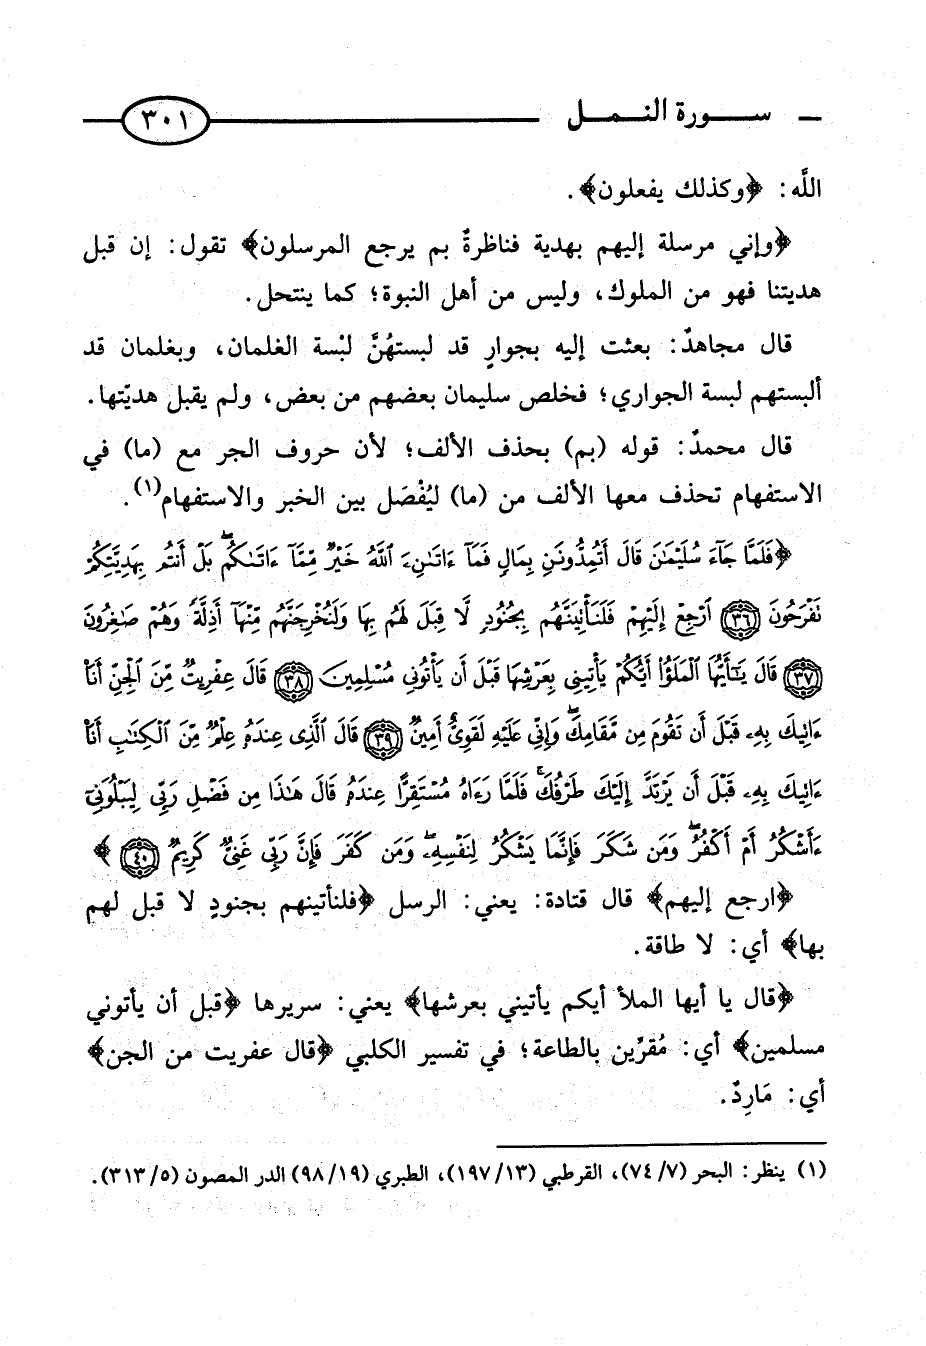 ـ ســـورة النـمـــل ٣٠١
اللَّه: ﴿وكذلك يفعلون﴾.
﴿وإني مرسلة إليهم بهدية فناظرةٌ بم يرجع المرسلون﴾ تقول: إن قبل
هديتنا فهو من الملوك، وليس من أهل النبوة؛ كما ينتحل.
قال مجاهدٌ: بعثت إليه بجوارٍ قد لبستهُنَّ لبْسة الغلمان، وبغلمان قد
ألبستهم لبسة الجواري؛ فخلص سليمان بعضهم من بعض، ولم يقبل هديّتها.
قال محمدٌ: قوله (بم) بحذف الألف؛ لأن حروف الجر مع (ما) في
الاستفهام تحذف معها الألف من (ما) ليُفْصَل بين الخبر والاستفهام(١).
﴿فَلَمَّا جَآءَ سُلَيْمَٰنَ قَالَ أَتُمِدُّونَنِ بِمَالٍ فَمَآ ءَاتَىٰنِۦَ ٱللَّهُ خَيْرٌ مِّمَّآ ءَاتَىٰكُمۖ بَلْ أَنتُم بِهَدِيَّتِكُمْ
تَفْرَحُونَ ٣٦ ٱرْجِعْ إِلَيْهِمْ فَلَنَأْتِيَنَّهُم بِجُنُودٍ لَّا قِبَلَ لَهُم بِهَا وَلَنُخْرِجَنَّهُم مِّنْهَآ أَذِلَّةً وَهُمْ صَٰغِرُونَ
٣٧ قَالَ يَٰٓأَيُّهَا ٱلْمَلَؤُا۟ أَيُّكُمْ يَأْتِينِى بِعَرْشِهَا قَبْلَ أَن يَأْتُونِى مُسْلِمِينَ ٣٨ قَالَ عِفْرِيتٌ مِّنَ ٱلْجِنِّ أَنَا۠
ءَاتِيكَ بِهِۦ قَبْلَ أَن تَقُومَ مِن مَّقَامِكَۖ وَإِنِّى عَلَيْهِ لَقَوِىٌّ أَمِينٌ ٣٩ قَالَ ٱلَّذِى عِندَهُۥ عِلْمٌ مِّنَ ٱلْكِتَٰبِ أَنَا۠
ءَاتِيكَ بِهِۦ قَبْلَ أَن يَرْتَدَّ إِلَيْكَ طَرْفُكَۚ فَلَمَّا رَءَاهُ مُسْتَقِرًّا عِندَهُۥ قَالَ هَٰذَا مِن فَضْلِ رَبِّى لِيَبْلُوَنِىٓ
ءَأَشْكُرُ أَمْ أَكْفُرُۖ وَمَن شَكَرَ فَإِنَّمَا يَشْكُرُ لِنَفْسِهِۦۖ وَمَن كَفَرَ فَإِنَّ رَبِّى غَنِىٌّ كَرِيمٌ ٤٠ ﴾
﴿ارجع إليهم﴾ قال قتادة: يعني: الرسل ﴿فلنأتينهم بجنودٍ لا قبل لهم
بها﴾ أي: لا طاقة.
﴿قال يا أيها الملأ أيكم يأتيني بعرشها﴾ يعني: سريرها ﴿قبل أن يأتوني
مسلمين﴾ أي: مُقرِّين بالطاعة؛ في تفسير الكلبي ﴿قال عفريت من الجن﴾
أي: مَارِدٌ.
(١) ينظر: البحر (٧/ ٧٤)، القرطبي (١٣/ ١٩٧)، الطبري (١٩/ ٩٨) الدر المصون (٥/ ٣١٣).